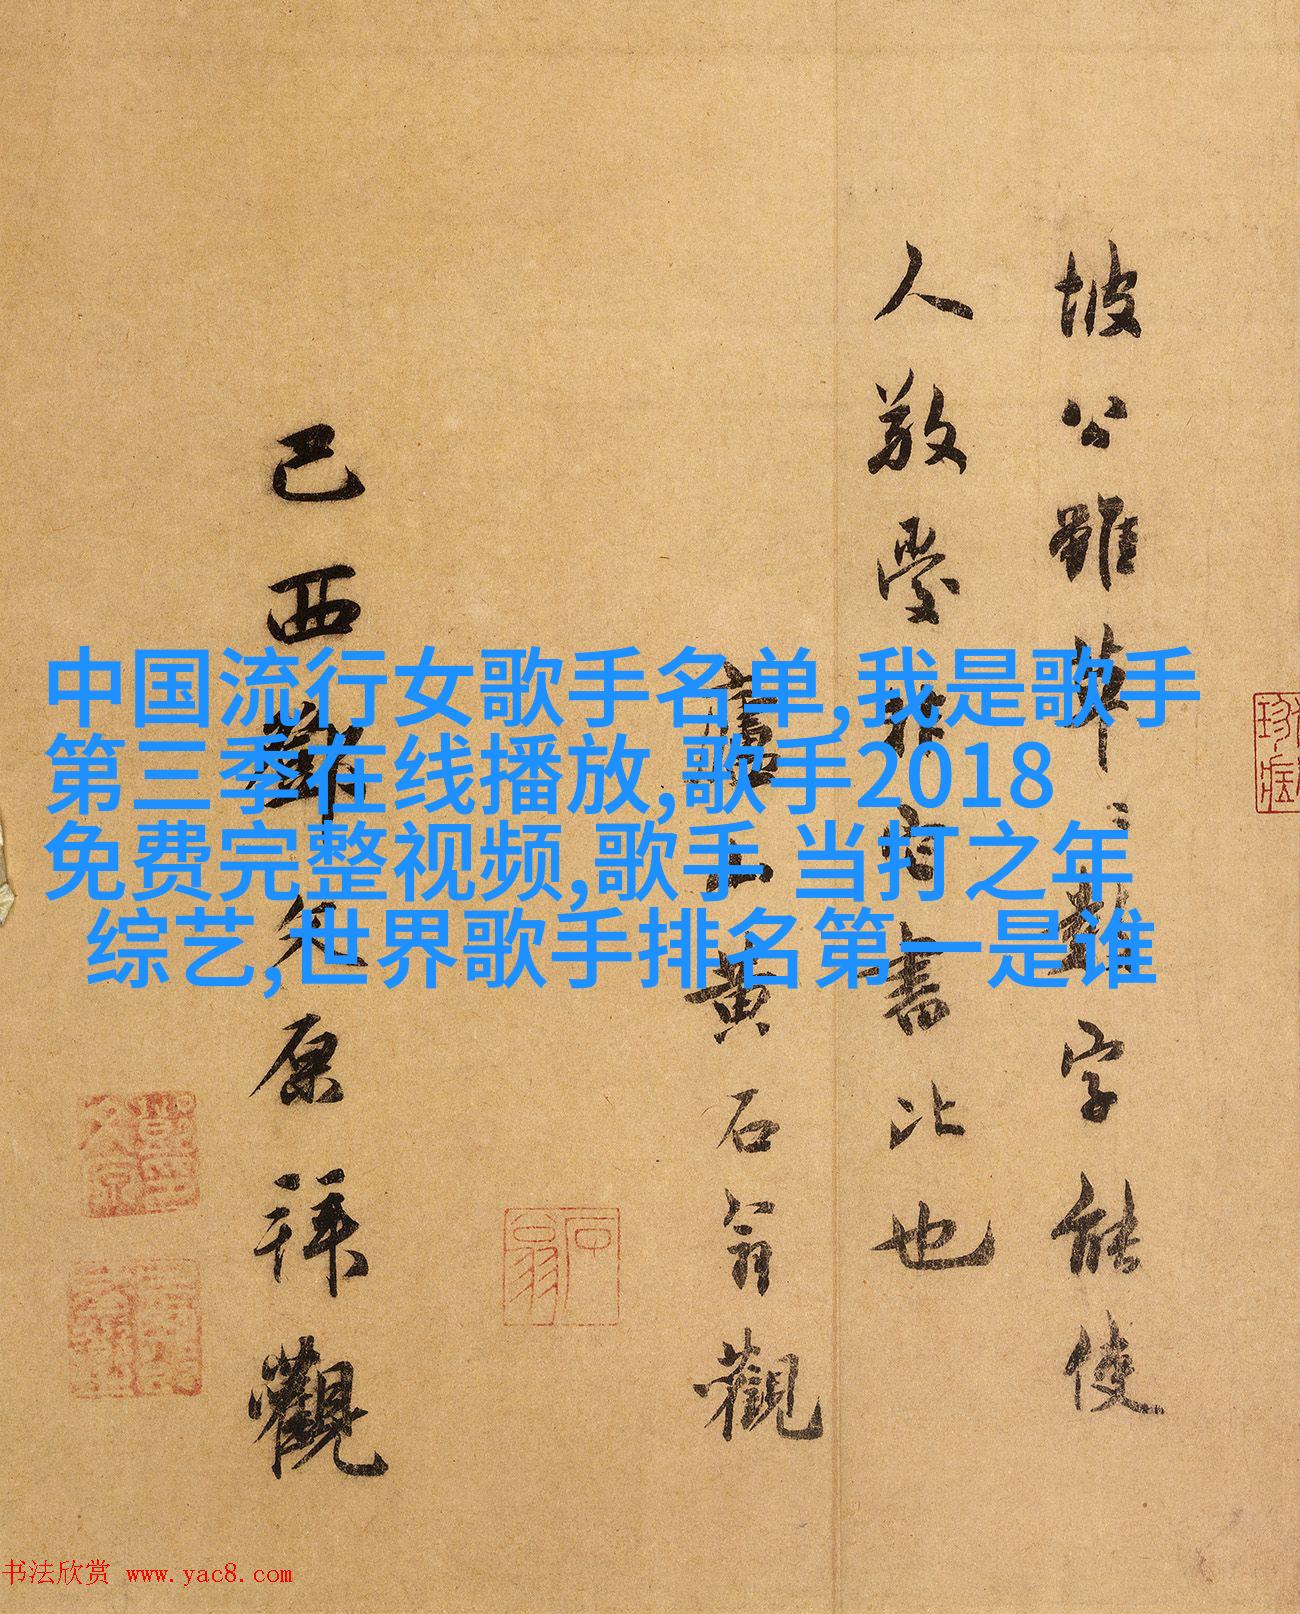 坡公雖草〻數字能使
人敬愛非書比也
廬山黄石翁觀
己酉鄧文原拜觀
中国流行女歌手名单,我是歌手
第三季在线播放,歌手2018
免费完整视频,歌手 当打之年
综艺,世界歌手排名第一是谁
石翁
书法欣赏 www.yac8.com